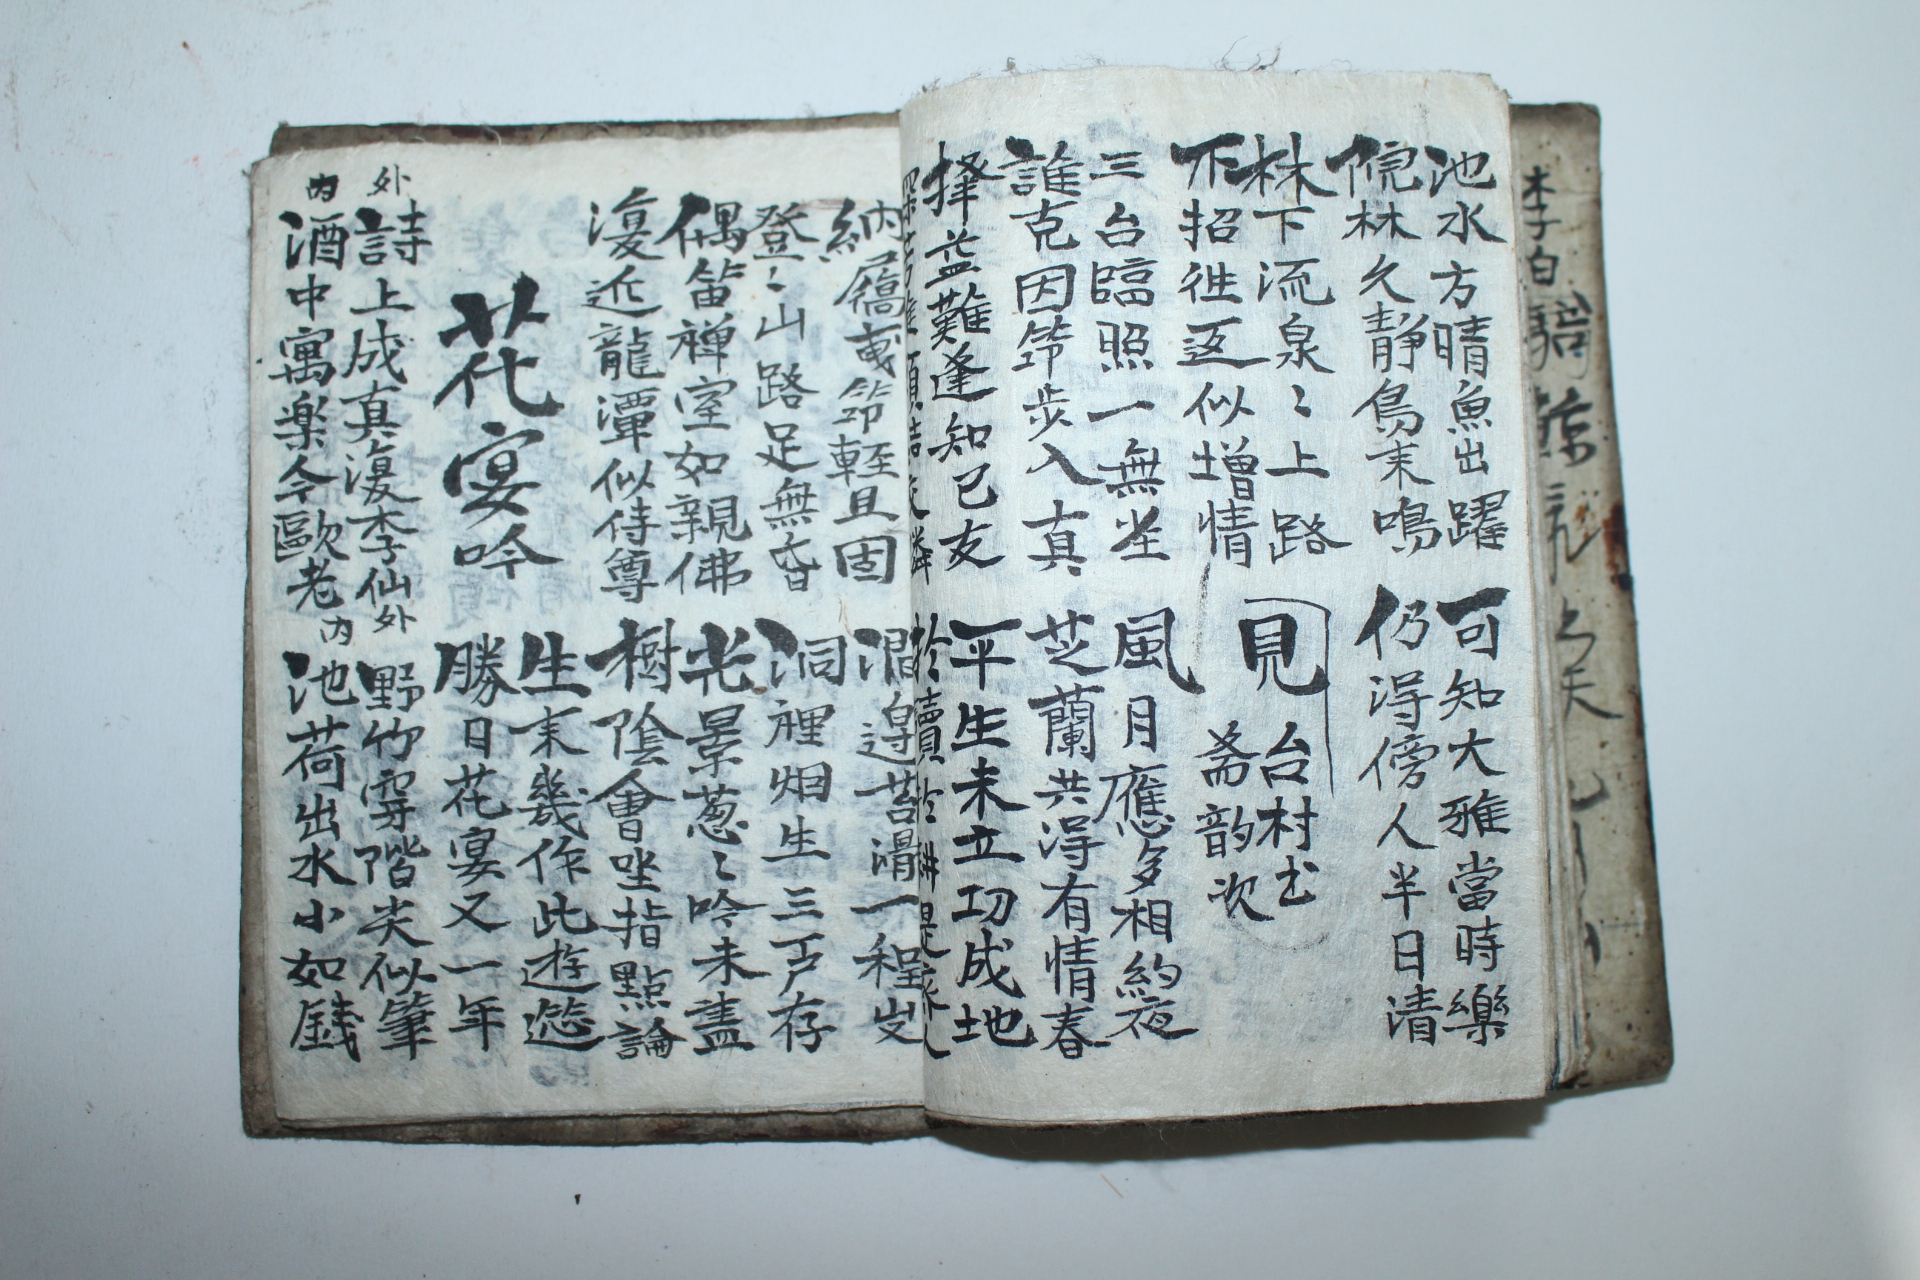 池水方晴魚出躍
可知大雅當時樂
院林久静鳥来鳴
仍淂傍人半日清
林下流泉〻上路
下招徃返似增情
見台村
斋韵次
三台臨照一無坐
風月應多相約夜
誰克因筇步入真
芝蘭共淂有情春
擇益難逢知己友
平生未立功成地
納屩曳筇輕且固
澗邉苔滑一程
登〻山路足無昏
洞裡烟生三戸存
偶笛禅室如親佛
光景葱〻吟未盡
復近龍潭似侍尊
樹陰會坐指點論
生来幾作此遊
花宴吟
勝日花宴又一年
外
詩上成真復李仙
外
野竹穿階尖似筆
内
酒中寓楽今歐老
内
池荷出水小如錢
李白騎鯨